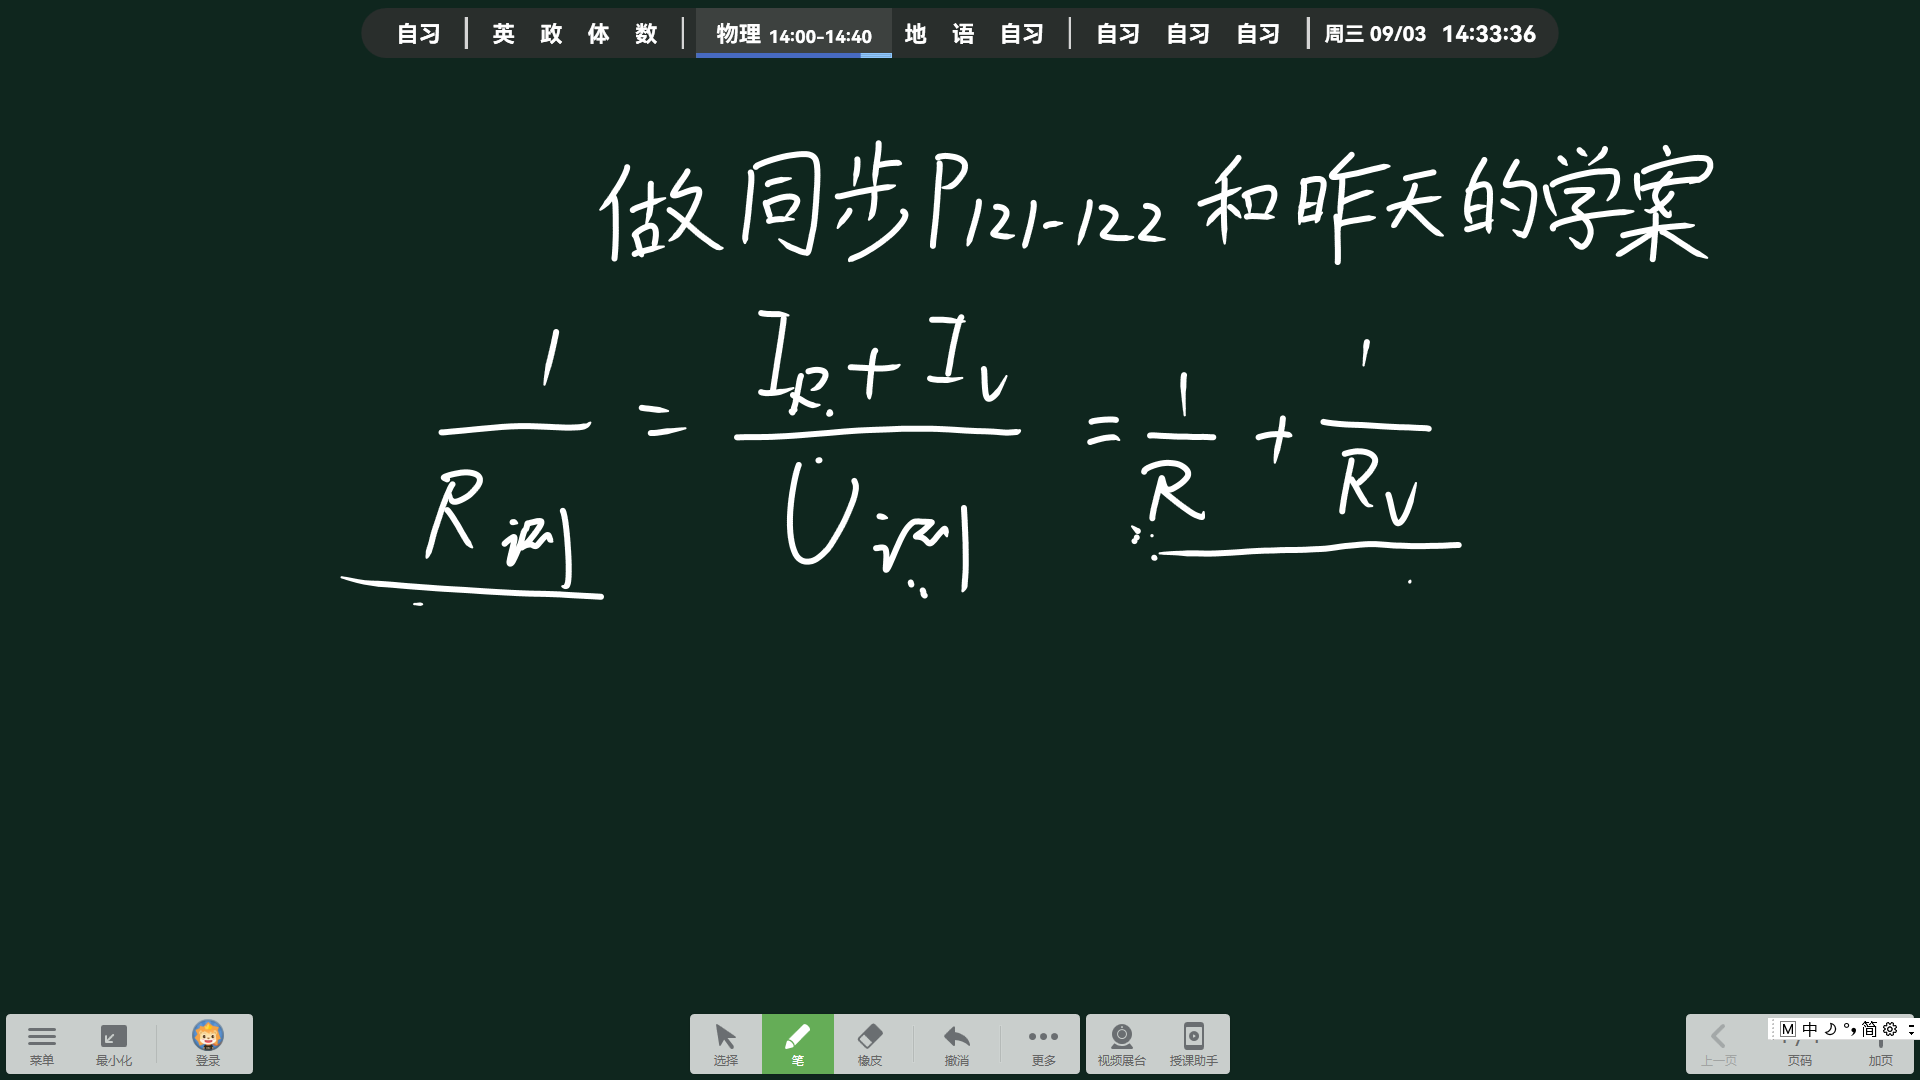 自习 | 英 政 体 数 | 物理 14:00-14:40 地 语 自习 | 自习 自习 自习 | 周三 09/03 14:33:36
做同步P121-122 和昨天的学案
1/R测 = (I_R + I_V)/U测 = 1/R + 1/R_V
菜单 最小化 登录 选择 笔 橡皮 撤消 更多 视频展台 授课助手 上一页 页码 加页
M 中 简